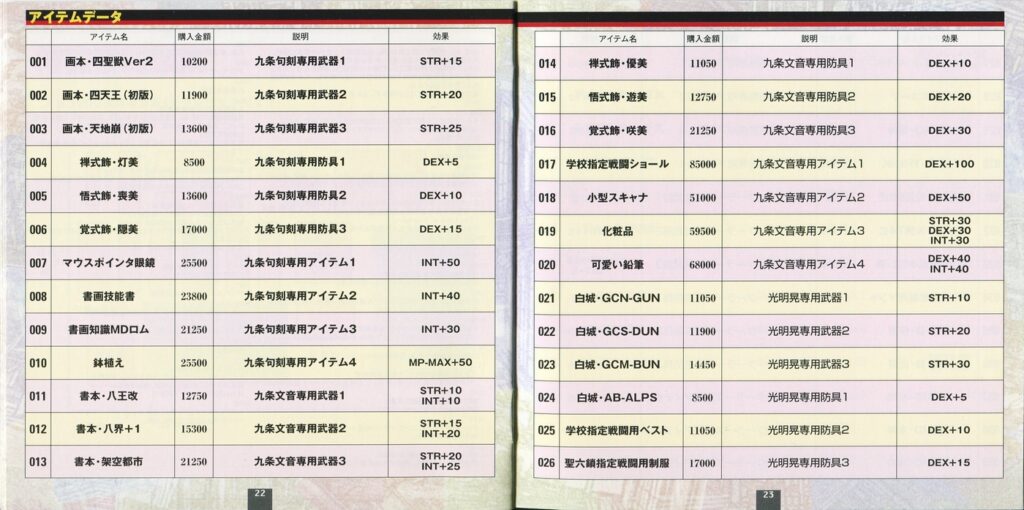 アイテムデータ
アイテム名 購入金額 説明 効果
001 画本・四聖獣Ver2 10200 九条句刻専用武器1 STR+15
002 画本・四天王(初版) 11900 九条句刻専用武器2 STR+20
003 画本・天地崩(初版) 13600 九条句刻専用武器3 STR+25
004 禅式飾・灯美 8500 九条句刻専用防具1 DEX+5
005 悟式飾・喪美 13600 九条句刻専用防具2 DEX+10
006 覚式飾・隠美 17000 九条句刻専用防具3 DEX+15
007 マウスポインタ眼鏡 25500 九条句刻専用アイテム1 INT+50
008 書画技能書 23800 九条句刻専用アイテム2 INT+40
009 書画知識MDロム 21250 九条句刻専用アイテム3 INT+30
010 鉢植え 25500 九条句刻専用アイテム4 MP-MAX+50
011 書本・八王改 12750 九条文音専用武器1 STR+10 INT+10
012 書本・八界+1 15300 九条文音専用武器2 STR+15 INT+20
013 書本・架空都市 21250 九条文音専用武器3 STR+20 INT+25
22
アイテム名 購入金額 説明 効果
014 禅式飾・優美 11050 九条文音専用防具1 DEX+10
015 悟式飾・遊美 12750 九条文音専用防具2 DEX+20
016 覚式飾・咲美 21250 九条文音専用防具3 DEX+30
017 学校指定戦闘ショール 85000 九条文音専用アイテム1 DEX+100
018 小型スキャナ 51000 九条文音専用アイテム2 DEX+50
019 化粧品 59500 九条文音専用アイテム3 STR+30 DEX+30 INT+30
020 可愛い鉛筆 68000 九条文音専用アイテム4 DEX+40 INT+40
021 白城・GCN-GUN 11050 光明晃専用武器1 STR+10
022 白城・GCS-DUN 11900 光明晃専用武器2 STR+20
023 白城・GCM-BUN 14450 光明晃専用武器3 STR+30
024 白城・AB-ALPS 8500 光明晃専用防具1 DEX+5
025 学校指定戦闘用ベスト 11050 光明晃専用防具2 DEX+10
026 聖六鎖指定戦闘用制服 17000 光明晃専用防具3 DEX+15
23